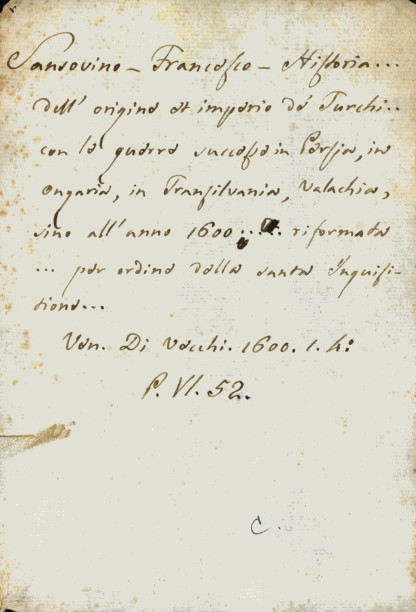 Sansovino - Francesco - Historia...
dell' origine et imperio de' Turchi..
con le guerre successe in Persia, in
Ongaria, in Transilvania, Valachia,
sino all' anno 1600..... riformata
... per ordine della santa Inquisi-
tione...
Ven. Di Vecchi. 1600. 1. h:
P. VI. 52.
C.